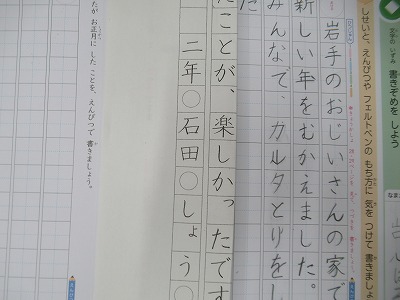 書きぞめを しよう
しせいと、えんぴつや フェルトペンの もち方に 気を つけて 書きましょ
岩手のおじいさんの家で
新しい年をむかえました。
みんなで、カルタとりをし
た
たことが、楽しかったです
二年○石田○しょう○
たが お正月に した ことを、えんぴつで 書きましょう。